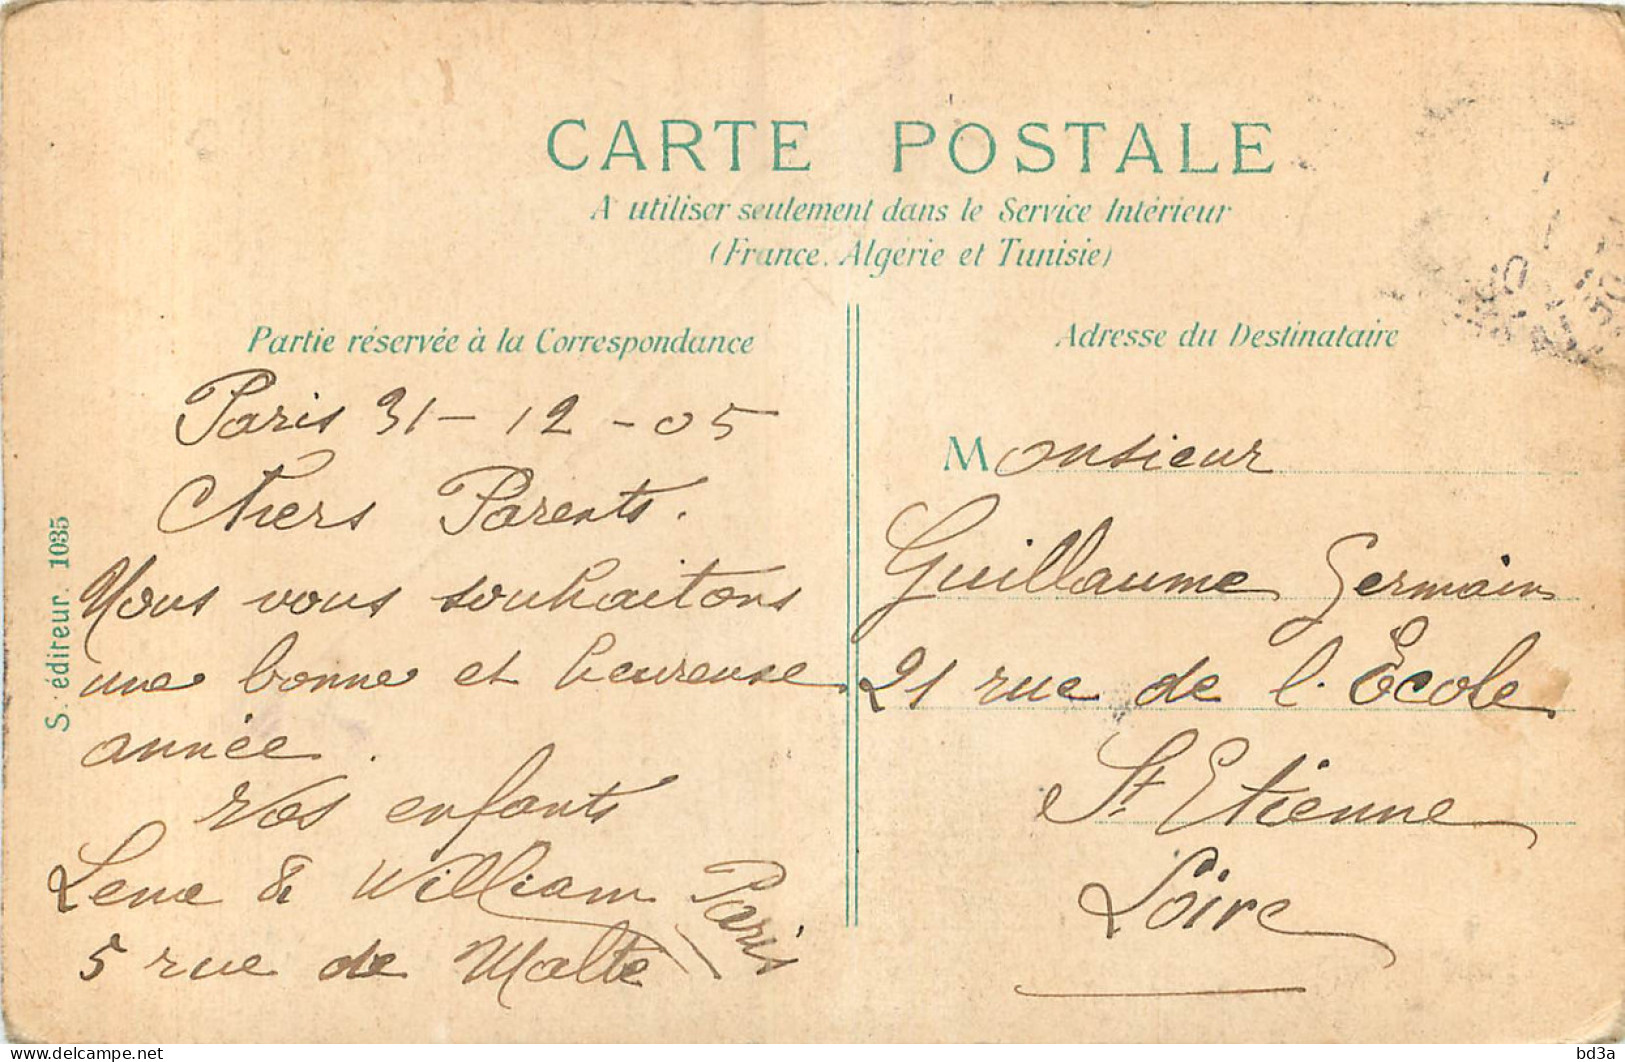 CARTE POSTALE
A utiliser seulement dans le Service Intérieur
(France, Algérie et Tunisie)
Partie réservée à la Correspondance
Paris 31-12-05
Chers Parents.
Nous vous souhaitons
une bonne et heureuse
année.
Vos enfants
Lena & William
5 rue de Malte Paris
S. éditeur. 1035
Adresse du Destinataire
Monsieur
Guillaume Germain
21 rue de l'École
St Etienne
Loire
delcampe.net
bd3a